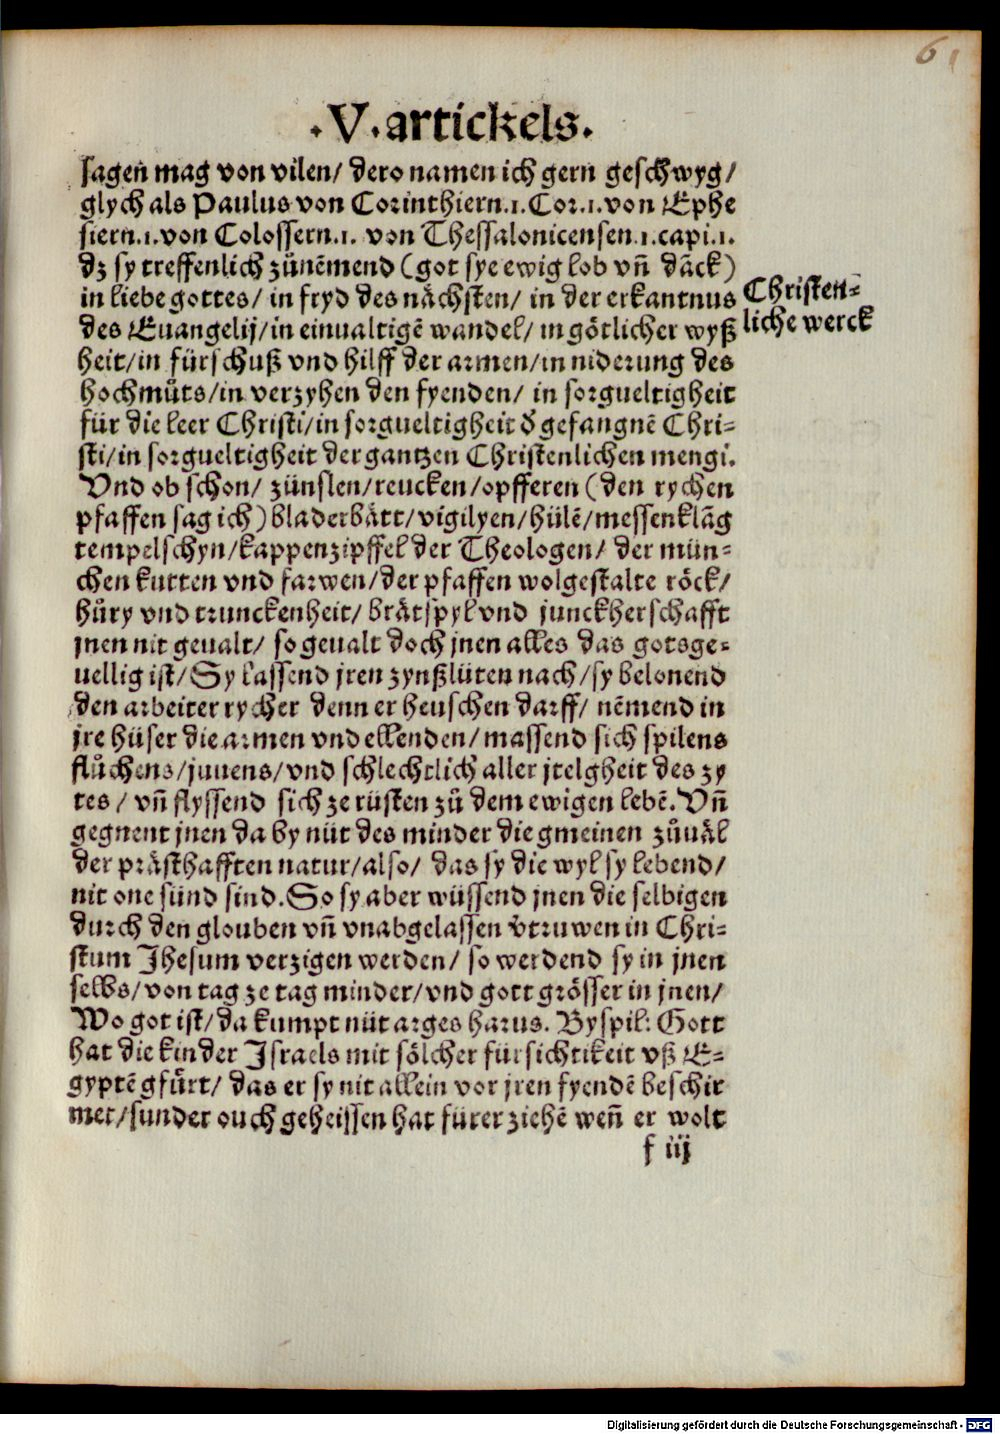 61
.V. artickels.
sagen mag von vilen/ dero namen ich gern geschwyg/
glych als Paulus von Corinthiern.1.Cor.1.von Ephe
siern.1.von Colossern.1. von Thessalonicensen.1.capi.1.
dz sy treffenlich zůnēmend (got sye ewig lob vñ dāck)
in liebe gottes/ in fryd des nächsten/ in der erkantnus
Christen-
des Euangelij/in einualtigē wandel/ in götlicher wyß
liche werck
heit/in fürschuß vnd hilff der armen/in niderung des
hochmůts/in verzyhen den fyenden/ in sorgueltigheit
für die leer Christi/in sorgueltigheit d̕ gefangnē Chri-
sti/in sorgueltigheit der gantzen Christenlichen mengi.
Vnd ob schon/ zünslen/reucken/opfferen (den rychen
pfaffen sag ich) bladerbätt/vigilyen/hülē/messenklāg
tempelschyn/kappenzipffel der Theologen/ der mün-
chen kutten vnd farwen/der pfaffen wolgestalte röck/
hůry vnd trunckenheit/ brätspyl vnd junckherschafft
jnen nit geualt/ so geualt doch jnen alles das gotsge-
uellig ist/ Sy lassend jren zynßlüten nach/sy belonend
den arbeiter rycher denn er heuschen darff/ nēmend in
jre hüser die armen vnd ellenden/ massend sich spilens
flůchens/juuens/vnd schlechtlich aller jtelgheit des zy
tes/ vñ flyssend sich ze rüsten zů dem ewigen lebē. Vñ
gegnent jnen da by nüt des minder die gmeinen zůuäl
der prästhafften natur/also/ das sy die wyl sy lebend/
nit one sünd sind. So sy aber wüssend jnen die selbigen
durch den glouben vñ vnabgelassen v̕truwen in Chri-
stum Jhesum verzigen werden/ so werdend sy in jnen
selbs/von tag ze tag minder/vnd gott grösser in jnen/
Wo got ist/da kumpt nüt arges harus. Byspil: Gott
hat die kinder Israels mit sölcher fürsichtikeit vß E-
gyptē gfürt/ das er sy nit allein vor jren fyendē beschir
met/sunder ouch geheissen hat fürer ziehē weñ er wolt
f iij
Digitalisierung gefördert durch die Deutsche Forschungsgemeinschaft - DFG